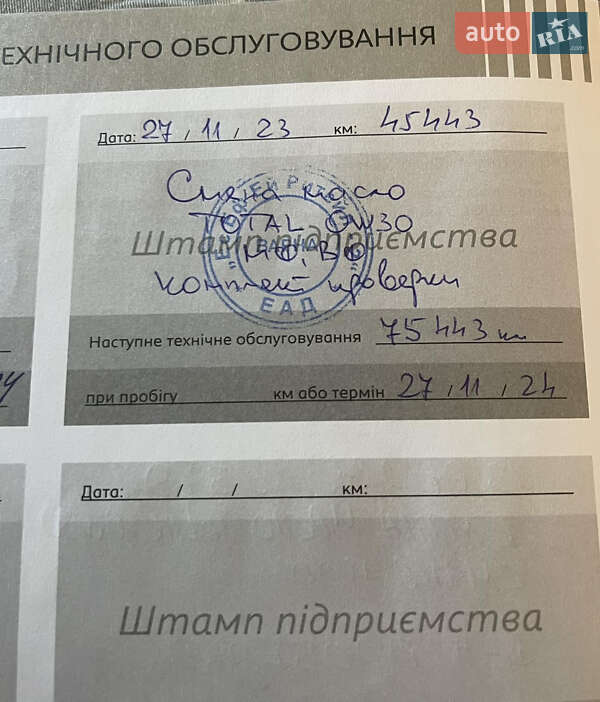 ЕХНІЧНОГО ОБСЛУГОВУВАННЯ
auto RIA .com
Дата: 27 / 11 / 23 км: 45443
Смяна масло
TOTAL 0W30
Штамп підприємства
ВАРНА
комплект проверки
ЕАД
Наступне технічне обслуговування 75443 км
при пробігу км або термін 27 / 11 / 24
Дата: / / км:
Штамп підприємства